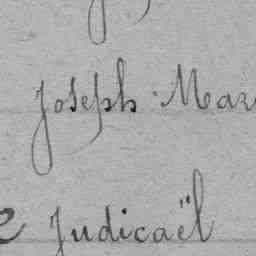 Joseph Mar
Judicaël